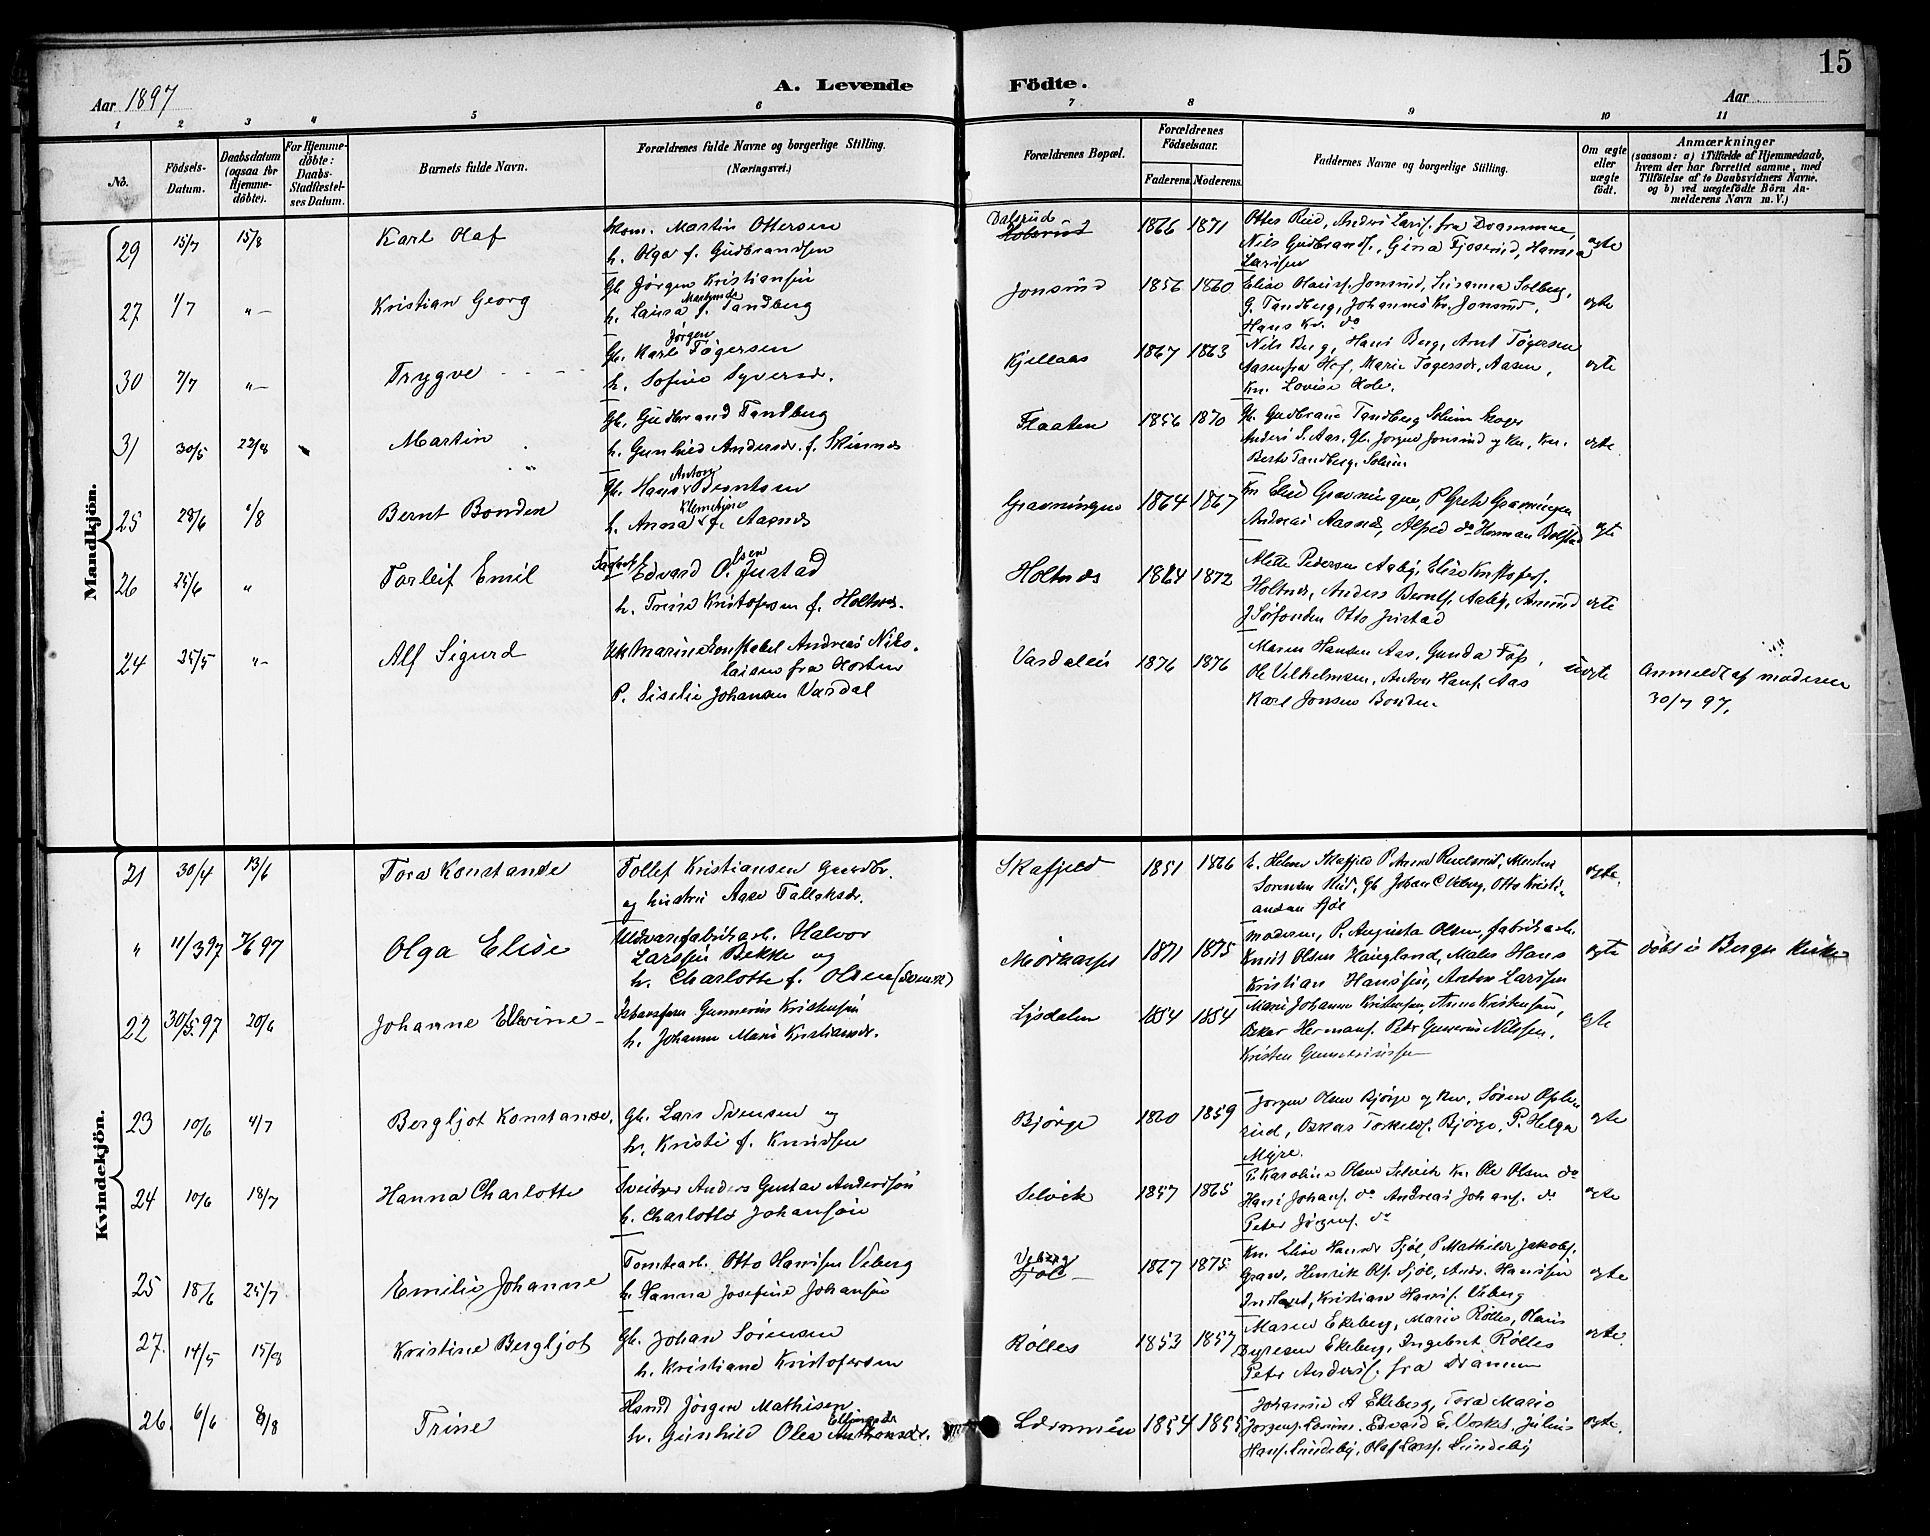 15
Aar 1897
A. Levende Födte.
Aar
1 2 3 4 5 6 7 8 9 10 11
No.
Födsels-Datum.
Daabsdatum (ogsaa for Hjemme-döbte).
For Hjemme-döbte: Daabs-Stadfæstel-ses Datum.
Barnets fulde Navn.
Forældrenes fulde Navne og borgerlige Stilling.
(Næringsvei.)
Forældrenes Bopæl.
Forældrenes Födselsaar.
Faderens. Moderens.
Faddernes Navne og borgerlige Stilling.
Om ægte eller uægte födt.
Anmærkninger
(saasom: a) i Tilfælde af Hjemmedaab, hvem der har forrettet samme, med Tilföielse af to Daabsvidners Navne, og b) ved uægtefödte Börn An-melderens Navn m. V.)
Mandkjön.
29 15/7 15/8 Karl Olaf
Martin Ottersen
h. Olga f. Gudbrandsen
Dalsrud
1866 1871
Nils Gudbrands., Gina
Larssen
ægte
27 1/7 "- Kristian Georg
Gb. Jørgen Kristiansen
h. Laura f. Tandberg
Jonsrud 1856 1860
Elise Jonsrud, Susanna Solberg,
G. Tandberg, Johannes Kr. Jonsrud,
Hans Kr. do
ægte
30 7/7 "- Trygve
Jørgen
Gb. Karl Tøgersen
h. Sofie Syversd.
Kjellaas 1867 1863
Nils Berg, Hans Berg, Arnt Tøgersen
Aasen fra Hof, Marie Tøgersdr. Aasen,
Kn. Lovise Hole.
ægte
31 30/5 22/8 Martin
Gb. Gudbrand Tandberg
h. Gunhild Andersdr. f. Skisnes
Flaaten 1856 1870
Gb. Gudbrand Tandberg Solum Skoger
Anders S. Aas, Gb. Jørgen Jonsrud og Kn., Kn.
Berte Tandberg, Solum
ægte
25 28/6 1/8 Bernt Bonden
Anton
Gb. Hans Berntsen
h. Anna f. Aasnes
Gravningen 1864 1867
Kn Elid Gravningen, P Grete Gravningen
Andreas Aasnæs, Alfred do Herman Bolstad
ægte
26 25/6 " Torleif Emil
Edvard Olsen Justad
h. Trine Kristofersen f. Holtnes.
Holtnes 1864 1872
Mette Pedersen Aaby, Elise Kristofers.
Holtnes, Anders Bernts. Aaby, Amund
J Sørfonden Otto Justad
ægte
24 25/5 "- Alf Sigurd
Uk Marinekonstabel Andreas Niko-
laisen fra Horten
P. Siselie Johansen Vardal
Vardalen 1876 1876
Maren Hansen Aas, Gunda
Ole Vilhelmsen, Anton Hans. Aas
Karl Jonsen Bonden
uægte
Anmeldt af moderen
30/7 97.
Kvindekjön.
21 30/4 13/6 Tora Konstanse
Tollef Kristiansen Gaardbr.
og hustru Aase Tolleksdr.
Skafjeld 1851 1866
E. Helene Skafjeld P. Anna
Sorensen Rud, Gb Johan C Veberg, Otto Kristi-
ansen Sjøl
ægte.
" 11/3 97 7/6 97 Olga Elise
Halvor
Larssen Bekke og
h. Charlotte f. Olsen (Svensk)
1871 1875
moderen, P. Augusta Olsen, fabrikarb.
Knut Olsen Haugland, Maler Hans
Kristian Hanssen, Anton Larssen
ægte
døbt i Berger Kirke
22 30/5 97 20/6 Johanne Elevine
Gunnerius Kristensen
h. Johanne Marie Kristiansdr.
Lysdalen 1854 1854
Marie Johanne Kristensen, Anna Kristensen,
Oskar Hermans. Peter Nilssen,
Kristen Gunneriussen
ægte
23 10/6 4/7 Bergljot Konstanse.
Gb. Lars Svensen og
h. Kristi f. Knudsen
Bjørge 1860 1859
Jørgen Olsen Bjørge og Kn, Søren
rud, Oskar Torkelds. Bjørge, P. Helga
Myre.
ægte
24 10/6 18/7 Hanna Charlotte
Sveitser Anders Gustav Anderssøn
h. Charlotte Johansøn
Selvik 1857 1865
P. Karoline Olsen Selvik Kn. Ole Olsen do
Hans Johans. do Andreas Johans. do
Peter Jørgens. do
ægte
25 18/6 25/7 Emilie Johanne
Tomtearb. Otto Hanssen Veberg
h. Hanna Josefine Johansen
Veberg
Sjøl
1867 1875
Kn. Elise Hansdr Sjøl, P. Mathilde Jakobs.
Gran, Henrik Ols. Sjøl, Andr. Hanssen
Kristian Hans. Veberg
ægte
27. 14/5 15/8 Kristine Bergljot
Gb. Johan Sørensen
h. Kristiane Kristofersen
Rølles 1853 1857
Maren Ekeberg, Marie Rølles, Olaus
Syresen Ekeberg, Ingebret Rølles
Peter Anders. fra Drammen
ægte.
26. 6/6 8/8 Trine
Hsmd Jörgen Mathisen
h. Gunhild Olea
1854 1855
Johanne A Ekeberg, Tora Marie
Jørgens. Edvard E. Vosket, Julius
Hans. Lundeby, Olaf Larss. Lundeby
ægte.